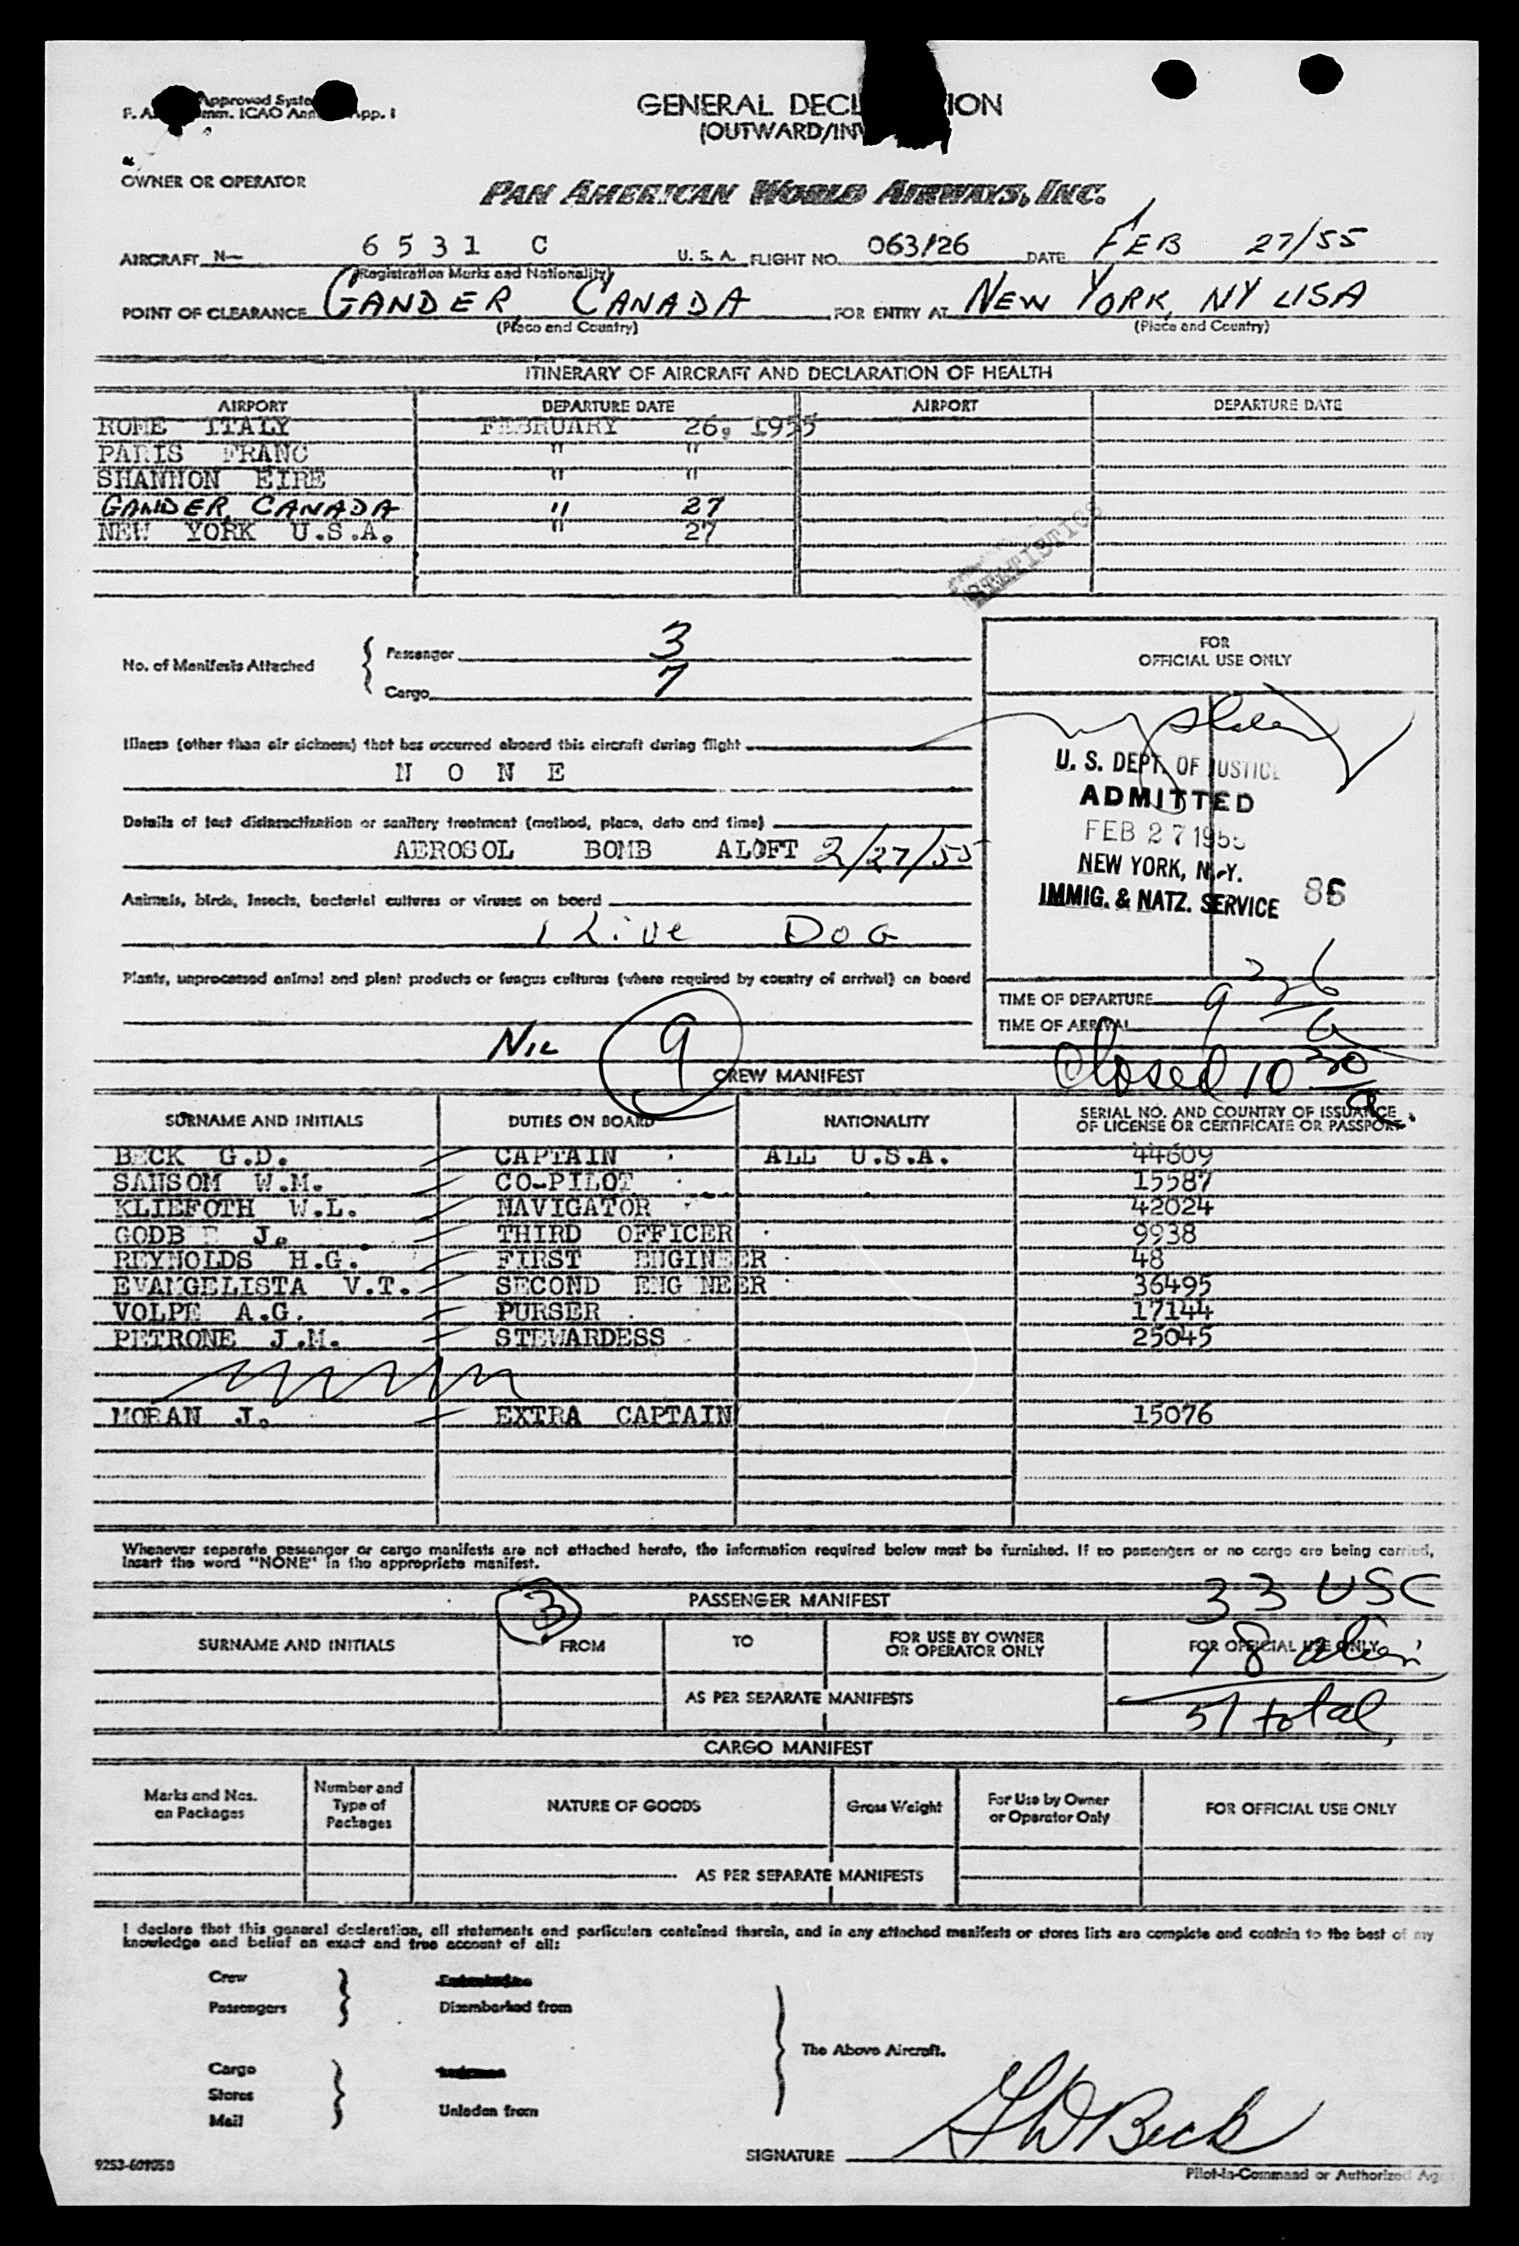 Approved
ICAO App. I
GENERAL DECL ION
(OUTWARD/INW
OWNER OR OPERATOR
PAN AMERICAN WORLD AIRWAYS, INC.
AIRCRAFT N— 6531 C U. S. A. FLIGHT NO. 063/26 DATE FEB 27/55
(Registration Marks and Nationality)
POINT OF CLEARANCE GANDER, CANADA FOR ENTRY AT NEW YORK, NY USA
(Place and Country) (Place and Country)
ITINERARY OF AIRCRAFT AND DECLARATION OF HEALTH
AIRPORT DEPARTURE DATE AIRPORT DEPARTURE DATE
ROME ITALY FEBRUARY 26, 1955
PARIS FRANC " "
SHANNON EIRE " "
GANDER, CANADA " 27
NEW YORK U.S.A. " 27
STATISTICS
FOR
OFFICIAL USE ONLY
No. of Manifests Attached { Passenger 3
Cargo 7
Illness (other than air sickness) that has occurred aboard this aircraft during flight
N O N E
U. S. DEPT. OF JUSTICE
ADMITTED
FEB 27 1955
NEW YORK, N.Y.
IMMIG. & NATZ. SERVICE 86
Details of last disinsectization or sanitary treatment (method, place, date and time)
AEROSOL BOMB ALOFT 2/27/55
Animals, birds, insects, bacterial cultures or viruses on board
1 Live DOG
Plants, unprocessed animal and plant products or fungus cultures (where required by country of arrival) on board
NIL 9
TIME OF DEPARTURE
TIME OF ARRIVAL
Closed 10 30 a
CREW MANIFEST
SURNAME AND INITIALS DUTIES ON BOARD NATIONALITY SERIAL NO. AND COUNTRY OF ISSUANCE
OF LICENSE OR CERTIFICATE OR PASSPORT.
BECK G.D. CAPTAIN ALL U.S.A. 44609
SANSOM W.M. CO-PILOT 15587
KLIEFOTH W.L. NAVIGATOR 42024
GODB E J. THIRD OFFICER 9938
REYNOLDS H.G. FIRST ENGINEER 48
EVANGELISTA V.T. SECOND ENG NEER 36495
VOLPE A.G. PURSER 17144
PETRONE J.M. STEWARDESS 25045
MORAN J. EXTRA CAPTAIN 15076
Whenever separate passenger or cargo manifests are not attached hereto, the information required below must be furnished. If no passengers or no cargo are being carried,
insert the word "NONE" in the appropriate manifest.
PASSENGER MANIFEST
3
33 USC
SURNAME AND INITIALS FROM TO FOR USE BY OWNER
OR OPERATOR ONLY FOR OFFICIAL USE ONLY
18 alien
AS PER SEPARATE MANIFESTS
51 total
CARGO MANIFEST
Marks and Nos.
on Packages Number and
Type of
Packages NATURE OF GOODS Gross Weight For Use by Owner
or Operator Only FOR OFFICIAL USE ONLY
AS PER SEPARATE MANIFESTS
I declare that this general declaration, all statements and particulars contained therein, and in any attached manifests or stores lists are complete and contain to the best of my
knowledge and belief an exact and true account of all:
Crew
Passengers Disembarked from
The Above Aircraft.
Cargo
Stores
Mail Unladen from
SIGNATURE G D Beck
Pilot-in-Command or Authorized Ag
9253-601058